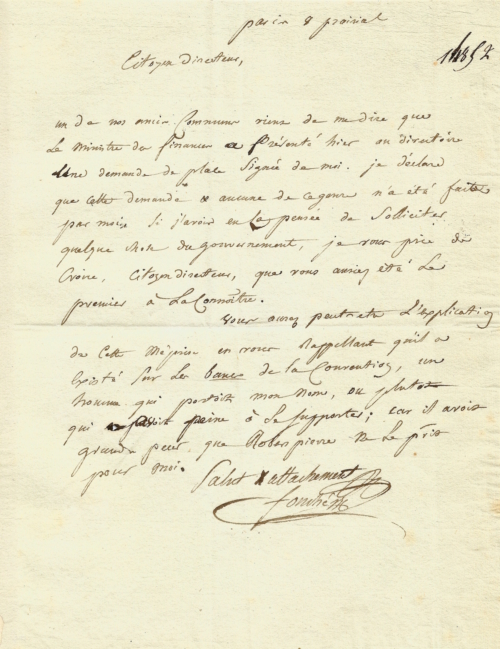 paris 8 prairial
11852
Citoyen directeur,
un de nos amis Communs vient de me dire que
Le Ministre des finances a présenté hier au directoire
Une demande de place Signée de moi. je déclare
que cette demande & aucune de ce genre n'a été faite
par moi. Si j'avois eu La pensée de Solliciter
quelque chose du gouvernement, je vous prie de
Croire, Citoyen directeur, que vous auriez été Le
premier à La Connoître.
Vous aurez peutetre L'explication
de Cette Méprise en vous Rappellant qu'il a
Existé sur Les bancs de la Convention, un
homme qui portoit mon Nom, ou plutot
qui avoit peine à Le Supporter; car il avoit
grande peur que Roberspierre Ne Le prit
pour Moi.
Salut & attachement
fouché